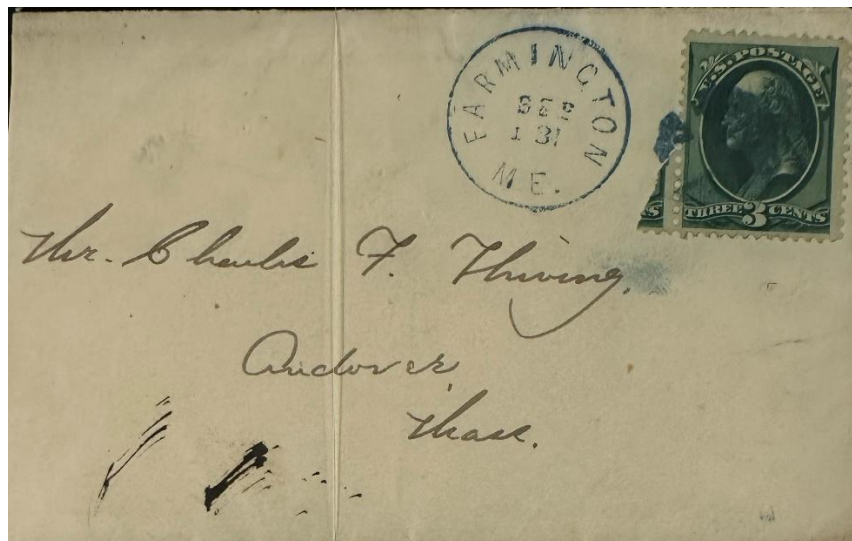 FARMINGTON
ME.
U.S. POSTAGE
S THREE 3 CENTS
Mr. Charles F. Thwing,
Andover
Mass.